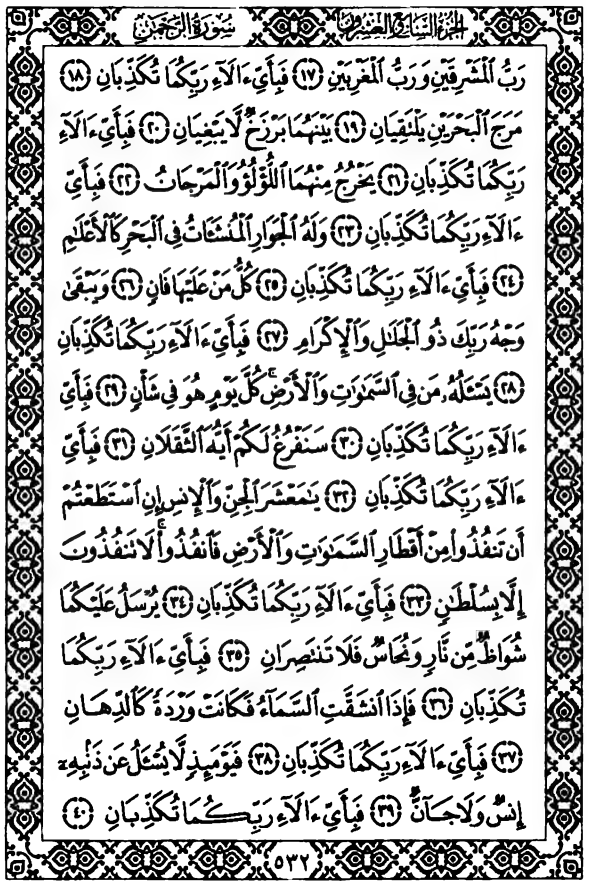 الجزء السابع والعشرون سورة الرحمن
رَبُّ ٱلْمَشْرِقَيْنِ وَرَبُّ ٱلْمَغْرِبَيْنِ ﴿١٧﴾ فَبِأَيِّ ءَالَآءِ رَبِّكُمَا تُكَذِّبَانِ ﴿١٨﴾
مَرَجَ ٱلْبَحْرَيْنِ يَلْتَقِيَانِ ﴿١٩﴾ بَيْنَهُمَا بَرْزَخٌ لَّا يَبْغِيَانِ ﴿٢٠﴾ فَبِأَيِّ ءَالَآءِ
رَبِّكُمَا تُكَذِّبَانِ ﴿٢١﴾ يَخْرُجُ مِنْهُمَا ٱللُّؤْلُؤُ وَٱلْمَرْجَانُ ﴿٢٢﴾ فَبِأَيِّ
ءَالَآءِ رَبِّكُمَا تُكَذِّبَانِ ﴿٢٣﴾ وَلَهُ ٱلْجَوَارِ ٱلْمُنشَـَٔاتُ فِى ٱلْبَحْرِ كَٱلْأَعْلَٰمِ
﴿٢٤﴾ فَبِأَيِّ ءَالَآءِ رَبِّكُمَا تُكَذِّبَانِ ﴿٢٥﴾ كُلُّ مَنْ عَلَيْهَا فَانٍ ﴿٢٦﴾ وَيَبْقَىٰ
وَجْهُ رَبِّكَ ذُو ٱلْجَلَٰلِ وَٱلْإِكْرَامِ ﴿٢٧﴾ فَبِأَيِّ ءَالَآءِ رَبِّكُمَا تُكَذِّبَانِ
﴿٢٨﴾ يَسْـَٔلُهُۥ مَن فِى ٱلسَّمَٰوَٰتِ وَٱلْأَرْضِ ۚ كُلَّ يَوْمٍ هُوَ فِى شَأْنٍ ﴿٢٩﴾ فَبِأَيِّ
ءَالَآءِ رَبِّكُمَا تُكَذِّبَانِ ﴿٣٠﴾ سَنَفْرُغُ لَكُمْ أَيُّهَ ٱلثَّقَلَانِ ﴿٣١﴾ فَبِأَيِّ
ءَالَآءِ رَبِّكُمَا تُكَذِّبَانِ ﴿٣٢﴾ يَٰمَعْشَرَ ٱلْجِنِّ وَٱلْإِنسِ إِنِ ٱسْتَطَعْتُمْ
أَن تَنفُذُوا۟ مِنْ أَقْطَارِ ٱلسَّمَٰوَٰتِ وَٱلْأَرْضِ فَٱنفُذُوا۟ ۚ لَا تَنفُذُونَ
إِلَّا بِسُلْطَٰنٍ ﴿٣٣﴾ فَبِأَيِّ ءَالَآءِ رَبِّكُمَا تُكَذِّبَانِ ﴿٣٤﴾ يُرْسَلُ عَلَيْكُمَا
شُوَاظٌ مِّن نَّارٍ وَنُحَاسٌ فَلَا تَنتَصِرَانِ ﴿٣٥﴾ فَبِأَيِّ ءَالَآءِ رَبِّكُمَا
تُكَذِّبَانِ ﴿٣٦﴾ فَإِذَا ٱنشَقَّتِ ٱلسَّمَآءُ فَكَانَتْ وَرْدَةً كَٱلدِّهَانِ
﴿٣٧﴾ فَبِأَيِّ ءَالَآءِ رَبِّكُمَا تُكَذِّبَانِ ﴿٣٨﴾ فَيَوْمَئِذٍ لَّا يُسْـَٔلُ عَن ذَنۢبِهِۦٓ
إِنسٌ وَلَا جَآنٌّ ﴿٣٩﴾ فَبِأَيِّ ءَالَآءِ رَبِّكُمَا تُكَذِّبَانِ ﴿٤٠﴾
٥٣٢